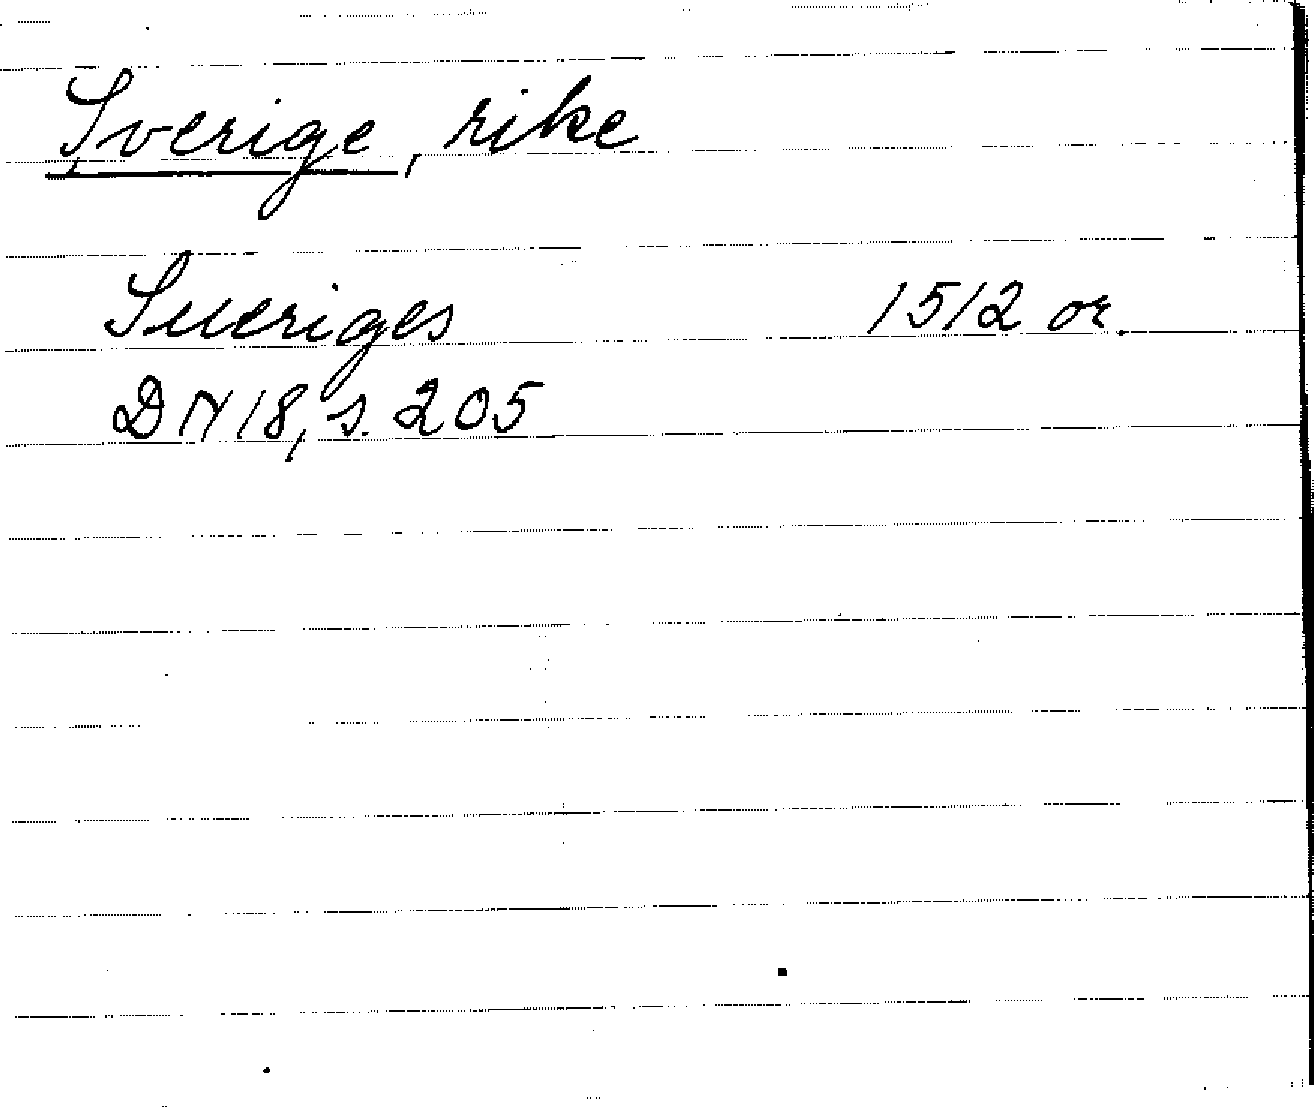 Sverige, rike
Sueriges 1512 or.
DN 18, s. 205